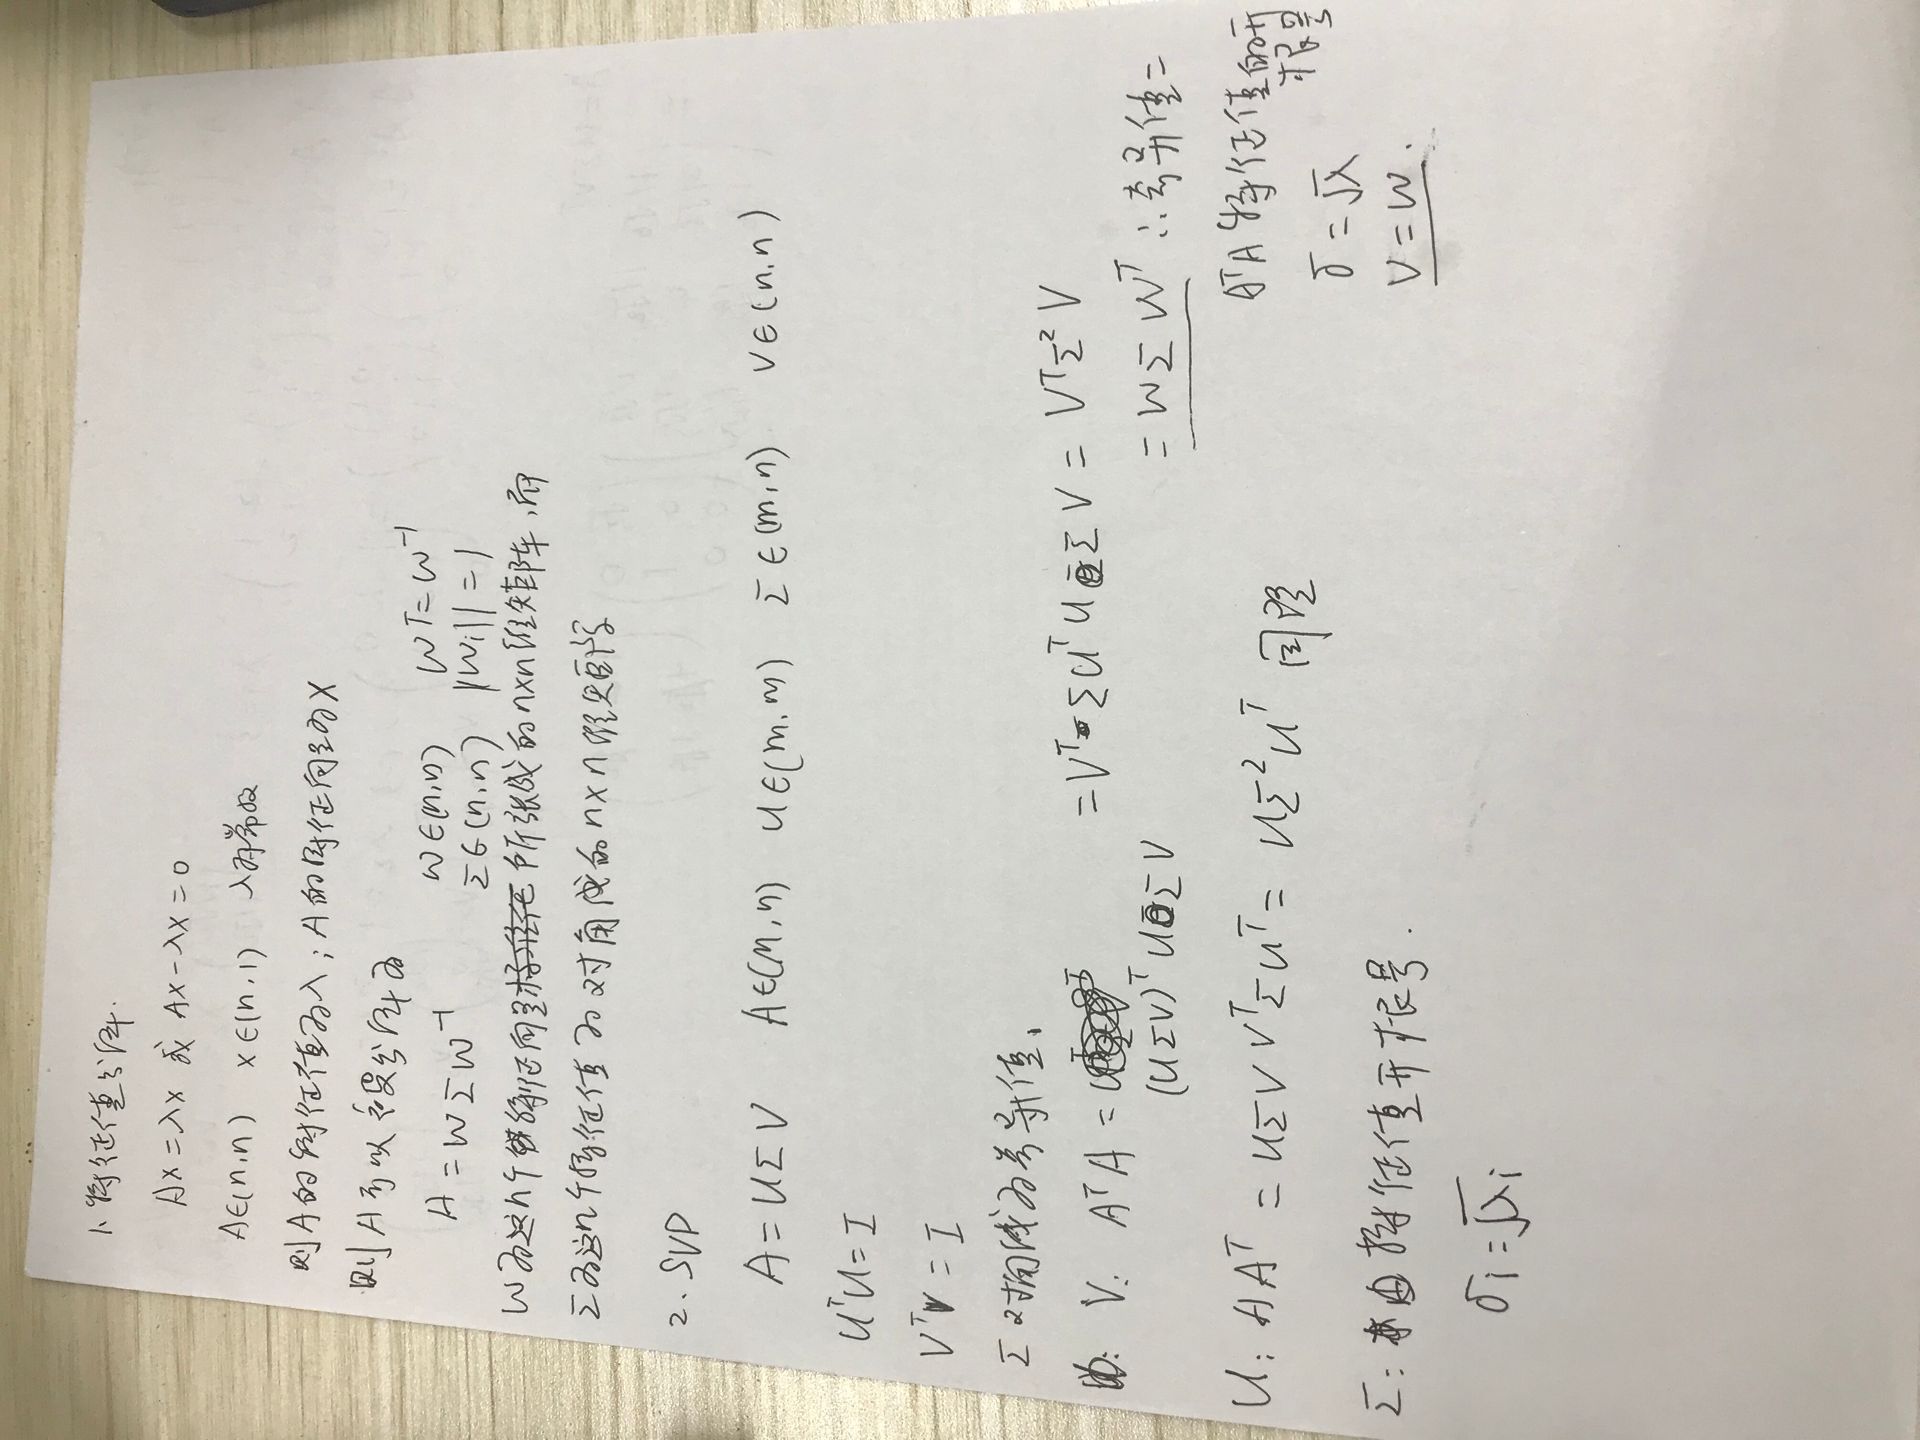 1、特征值分解.
Ax=λx 或 Ax-λx=0
A∈(n,n) x∈(n,1) λ为常数
则A的特征值为λ；A的特征向量为X
则A可以被分解为
A=WΣW⁻¹ W∈(n,n) Wᵀ=W⁻¹
Σ∈(n,n) ||Wi||=1
W为这n个特征向量所张成的n×n维矩阵，而
Σ为这n个特征值为对角线的n×n维矩阵
2. SVD
A=UΣV A∈(m,n) U∈(m,m) Σ∈(m,n) V∈(n,n)
UᵀU=I
VᵀV=I
Σ对角线为奇异值、
V: AᵀA= =VᵀΣUᵀUΣV=VᵀΣ²V
(UΣV)ᵀUΣV
=WΣWᵀ ∴奇异值=
AᵀA特征值的开
根号
σ=√λ
V=W.
U: AAᵀ=UΣVVᵀΣUᵀ=UΣ²Uᵀ 同理
Σ: 由特征值开根号.
σi=√λi